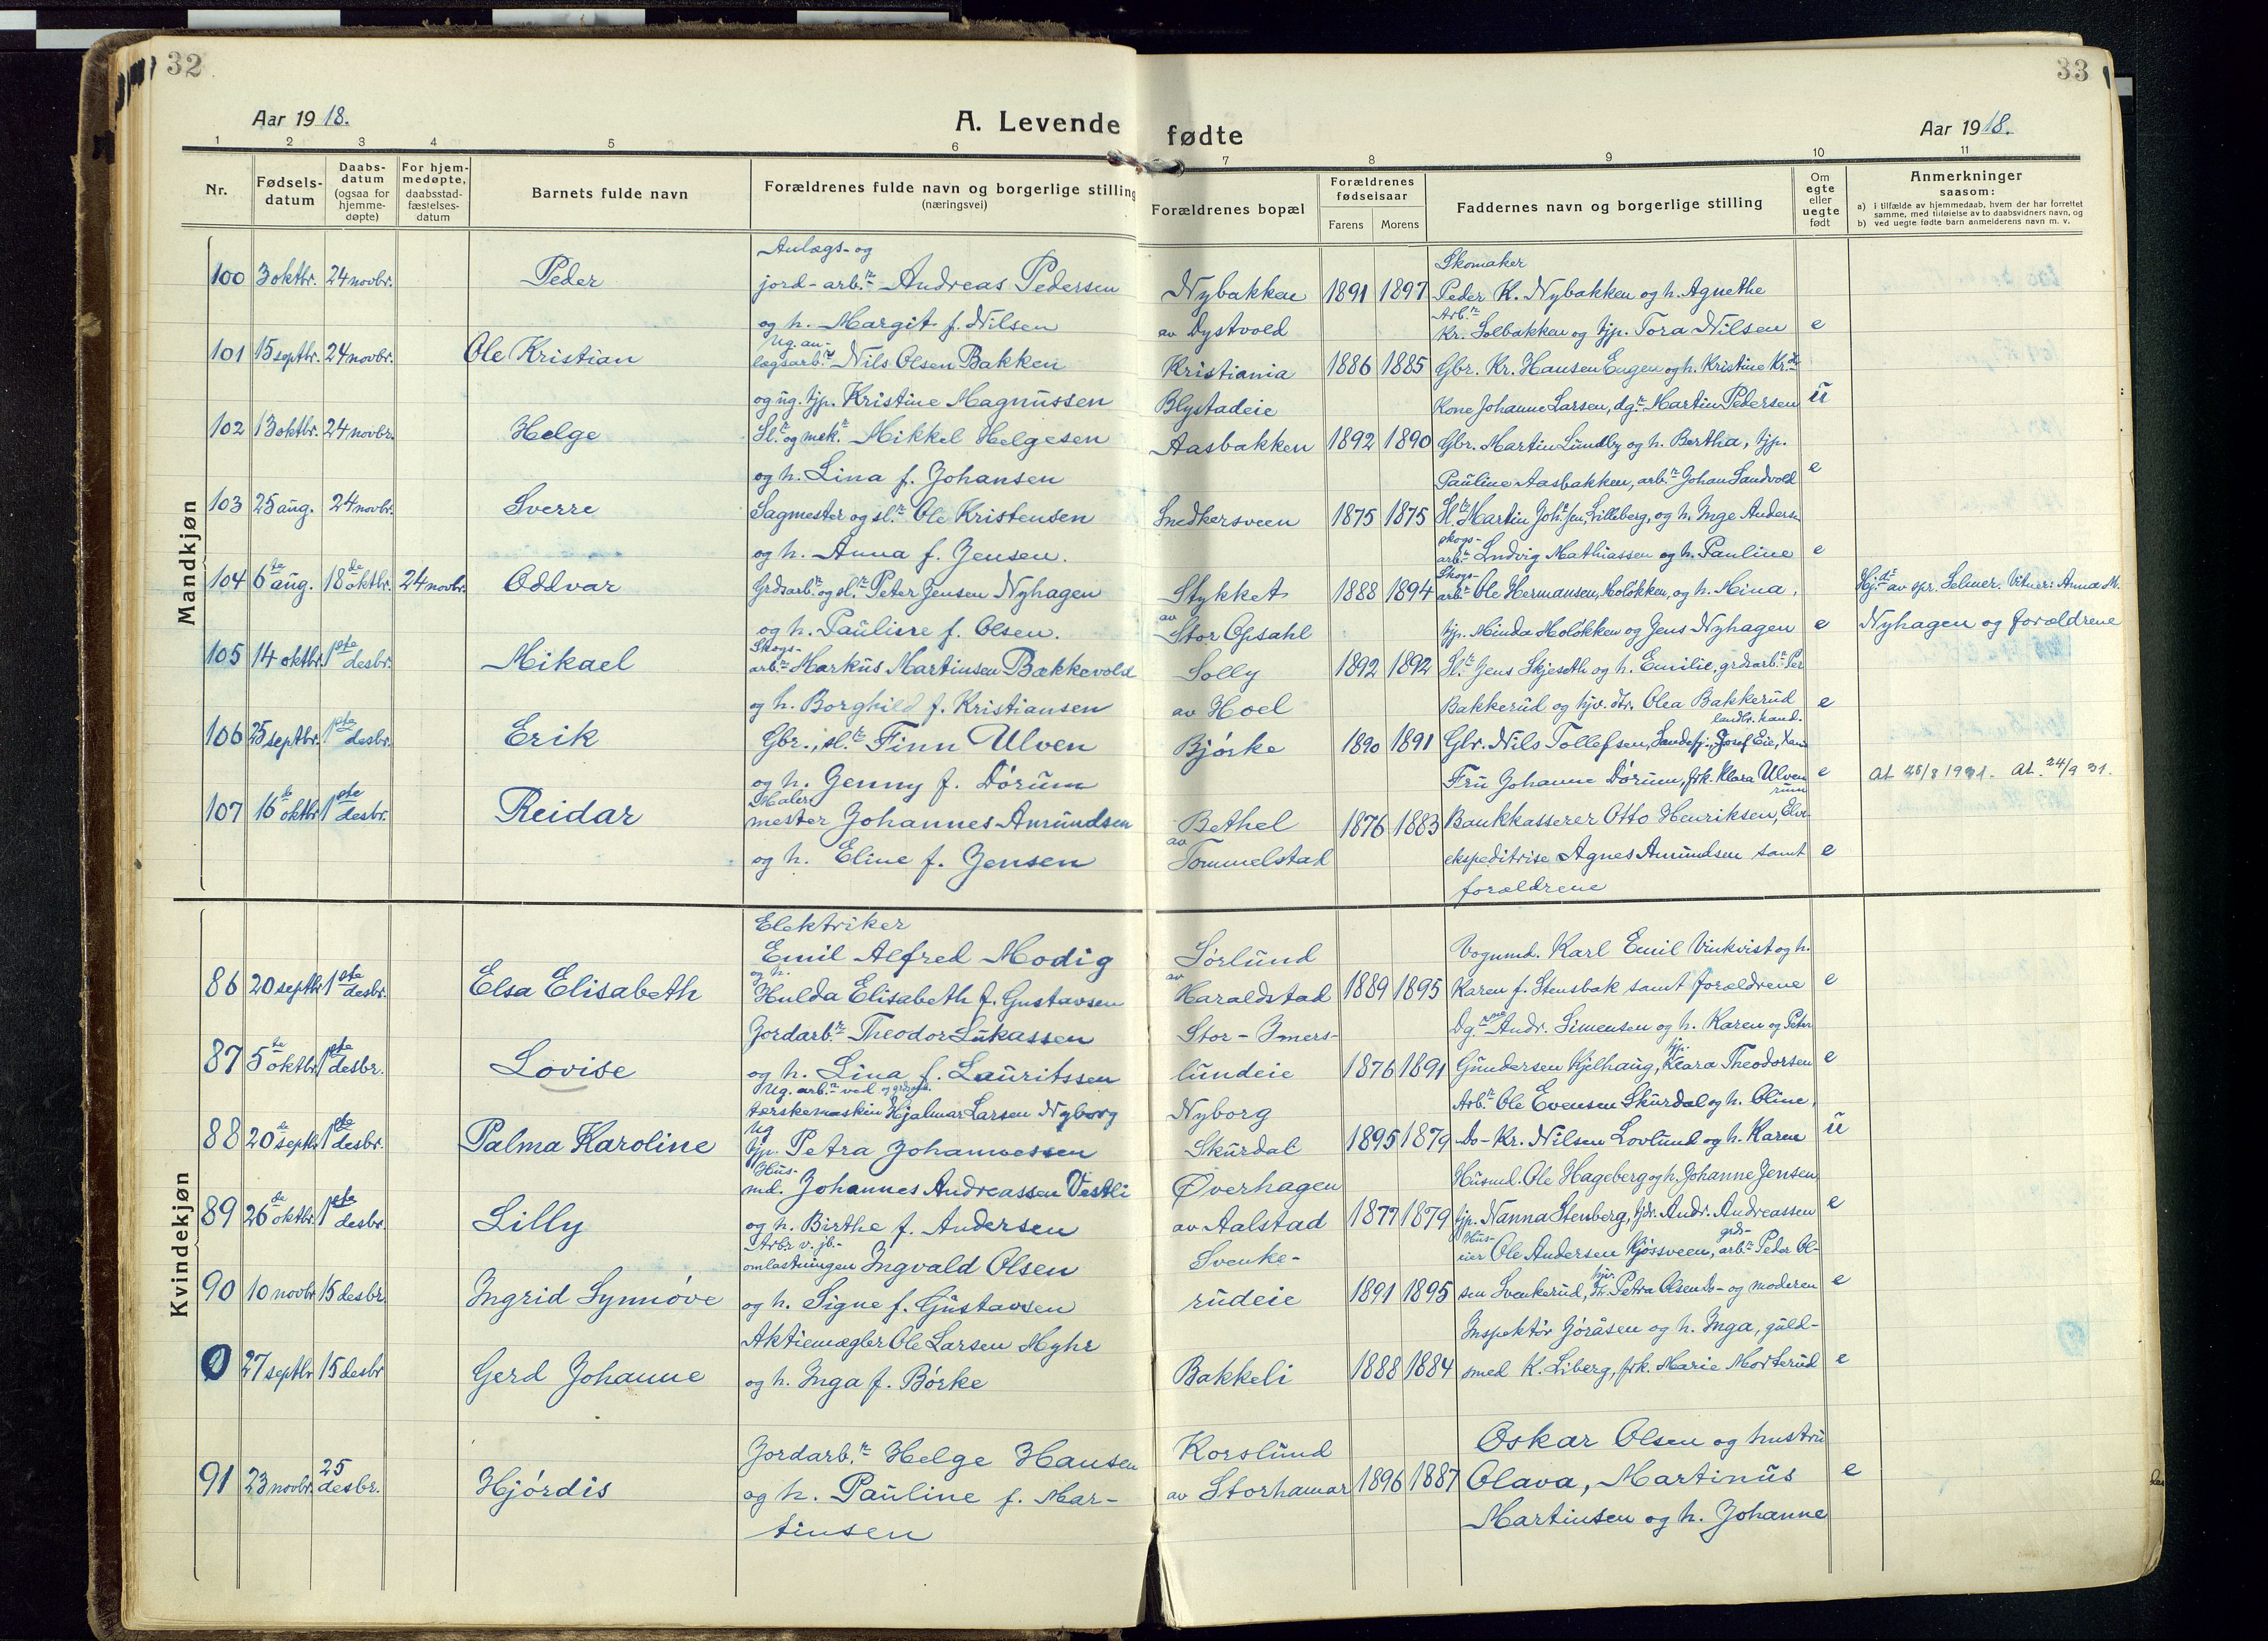 32
33
Aar 1918.
A. Levende fødte
Aar 1918.
1 2 3 4 5 6 7 8 9 10 11
Nr.
Fødselsdatum
Daabsdatum (ogsaa for hjemmedøpte)
For hjemmedøpte, daabsstadfæstelsesdatum
Barnets fulde navn
Forældrenes fulde navn og borgerlige stilling
(næringsvei)
Forældrenes bopæl
Forældrenes fødselsaar
Farens Morens
Faddernes navn og borgerlige stilling
Om egte eller uegte født
Anmerkninger
saasom:
a) i tilfælde av hjemmedaab, hvem der har forrettet samme, med tilføielse av to daabsvidners navn, og
b) ved uegte fødte barn anmelderens navn m. v.
Mandkjøn
Anlægs- og Skomaker
100 3 oktbr. 24 novbr. Peder jord-arb.r Andreas Pedersen Nybakken 1891 1897 Peder K. Nybakken og h. Agnethe
og h. Margit f. Nilsen av Dystvold Arb.r Kr. Solbakken og tjp. Tora Nilsen e
101 15 septbr. 24 novbr. Ole Kristian Ug. anlægsarb.r Nils Olsen Bakken Kristiania 1886 1885 Gbr. Kr. Hansen Engen og h. Kristine
og ug. tjp. Kristine Magnussen Blystadeie Kone Johanne Larsen, dg.r Martin Pedersen u
102 13 oktbr. 24 novbr. Helge Sl.r og mek.r Mikkel Helgesen Aasbakken 1892 1890 Gbr. Martin Lundby og h. Bertha, tjp.
og h. Lina f. Johansen Pauline Aasbakken, arb.r Johan Sandvold e
103 25 aug. 24 novbr. Sverre Sagmester og sl.r Ole Kristensen Snedkersveen 1875 1875 Sl.r Martin Lilleberg, og h. Inge Anders.
og h. Anna f. Jensen. skogsarb.r Ludvig Mathiassen og h. Pauline e
104 6te aug. 18de oktbr. 24 novbr. Oddvar Grdsarb.r og sl.r Peter Jensen Nyhagen Stykket 1888 1894 Skogsarb.r Ole Hermansen, Molokken, og h. Mina, Hj.d. av spr. Selmer. Vitner: Anna M.
og h. Pauline f. Olsen. av Stor Opsahl tjp. Minda Molokken og Jens Nyhagen e Nyhagen og forældrene
105 14 oktbr. 1ste desbr. Mikael Skogsarb.r Markus Martinsen Bækkevold Solly 1892 1892 Sl.r Jens Skjeseth og h. Emilie, grdsarb.r Per
og h. Borghild f. Kristiansen av Hoel Bakkerud og hjv. dtr. Olea Bakkerud e
106 25 septbr. 1ste desbr. Erik Gbr., sl.r Finn Ulven Bjørke 1890 1891 Gbr. Nils Tollefsen, Josef Eie,
og h. Jenny f. Dørum Fru Johanne Dørum, frk. Klara Ulven e At 25/8 1931. At. 24/9 31.
107 16de oktbr. 1ste desbr. Reidar Malermester Johannes Amundsen Bethel 1876 1883 Bankkasserer Otto Henriksen, Elverum
og h. Eline f. Jensen av Tommelstad ekspeditrise Agnes Amundsen samt e
forældrene
Kvindekjøn
Elektriker
Emil Alfred Modig Sørlund Vognmd. Karl Emil Vinkvist og h.
86 20 septbr. 1ste desbr. Elsa Elisabeth og h. Hulda Elisabeth f. Gustavsen av Haraldstad 1889 1895 Karen f. Stensbak samt forældrene e
Jordarb.r Theodor Lukassen Stor-Imers- Dg.rne Andr. Simensen og h. Karen og Peter
87 5te oktbr. 1ste desbr. Lovise og h. Lina f. Lauritssen lundeie 1876 1891 Gundersen Kjelhaug, tjp. Klara Theodorsen e
Ug. arb.r ved tærskemaskin Hjalmar Larsen Nyborg Nyborg Arb.r Ole Evensen Skurdal og h. Oline,
88 20de septbr. 1ste desbr. Palma Karoline ug tjp. Petra Johannessen Skurdal 1895 1879 Do- Kr. Nilsen Lovlund og h. Karen u
Husmd. Johannes Andreassen Vestli Øverhagen Husmd. Ole Hageberg og h. Johanne Jensen,
89 26de oktbr. 1ste desbr. Lilly og h. Birthe f. Andersen av Aalstad 1877 1879 tjp. Nanna Stenberg, Andr. Andreassen e
Arbr. v. jb.-omlastningen Ingvald Olsen Svenke- Huseier Ole Andersen Kjøssveen, grdsarb.r Peder Ol-
90 10 novbr. 15 desbr. Ingrid Synnøve og h. Signe f. Gustavsen rudeie 1891 1895 sen Svenkerud, Petra Olsen Do- og moderen e
Aktiemægler Ole Larsen Myhr Inspektør Jøråsen og h. Inga, guld-
0 27 septbr. 15 desbr Gerd Johanne og h. Inga f. Børke Bakkeli 1888 1884 smed K. Liberg, frk. Marie Morterud e
Jordarb.r Helge Hansen Korslund Oskar Olsen og hustru
91 23 novbr. 25 desbr. Hjørdis og h. Pauline f. Mar- av Storhamar 1896 1887 Olava, Martinus e
tinsen Martinsen og h. Johanne